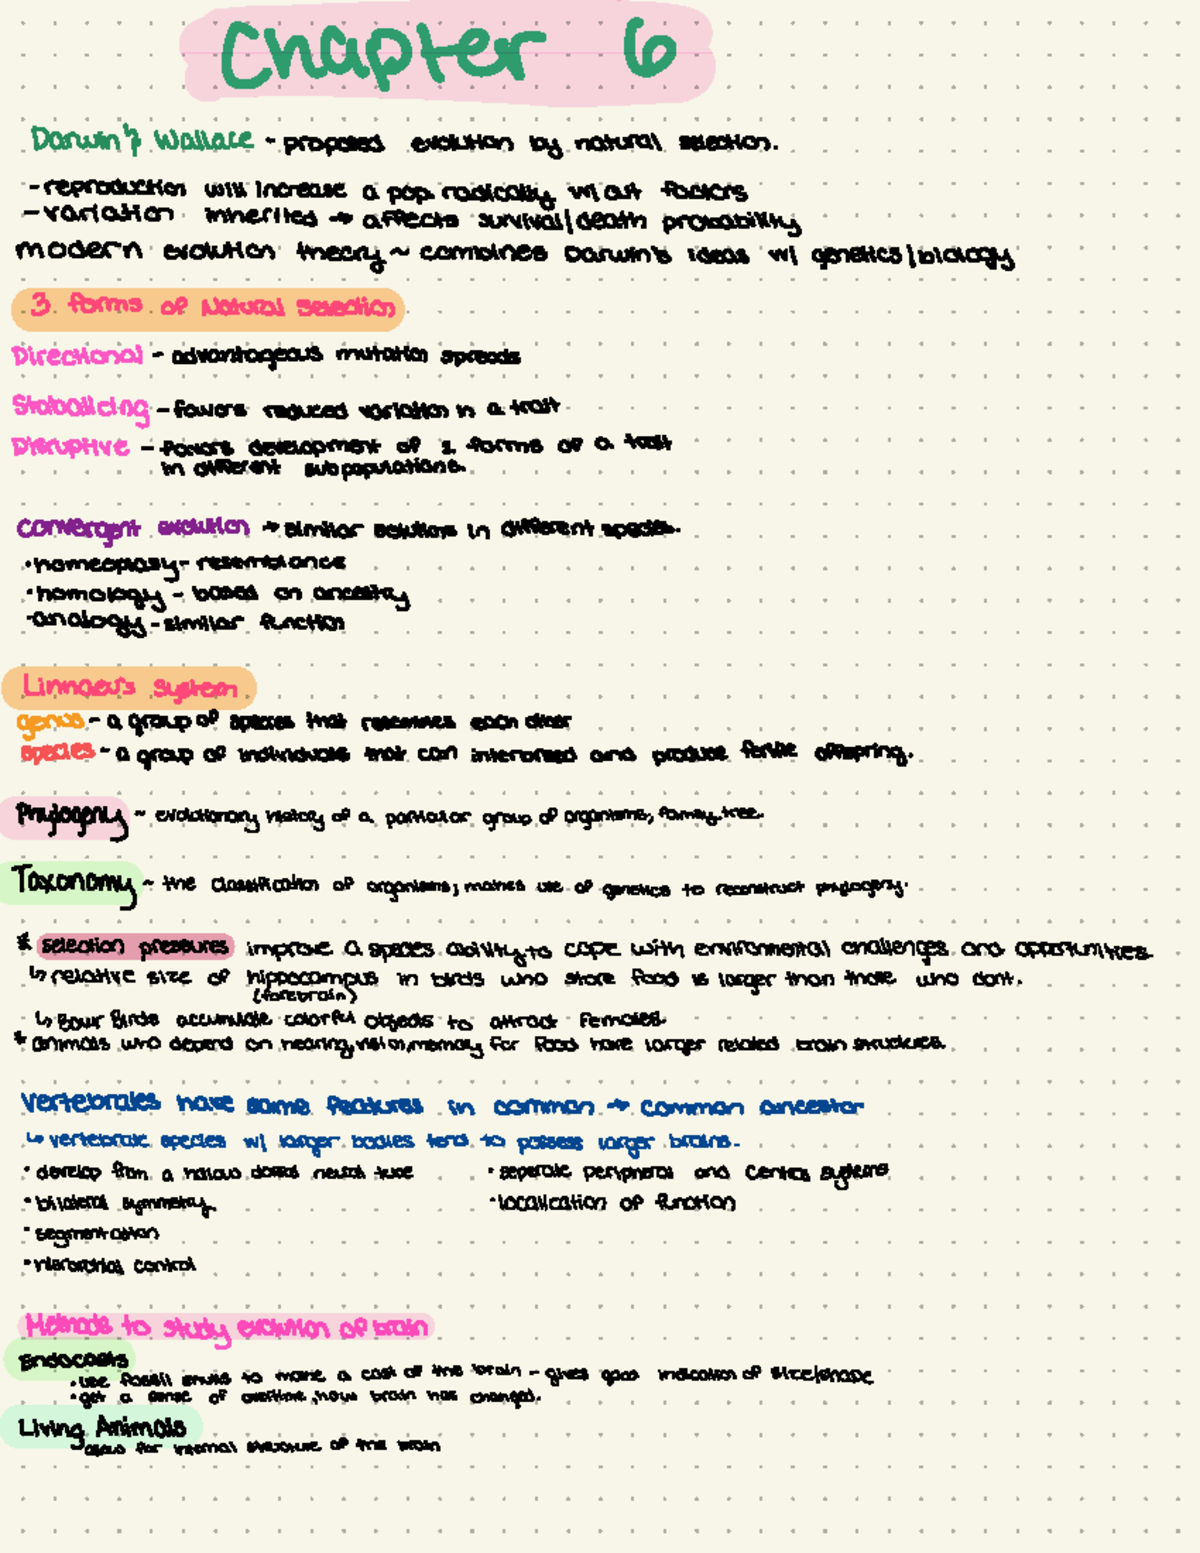 Chapter 6
Darwin & Wallace - proposed evolution by natural selection.
- reproduction will increase a pop. radically w/out factors
- variation inherited → affects survival/death probability
modern evolution theory ~ combines Darwin's ideas w/ genetics/biology
3 forms of Natural Selection
Directional - advantageous mutation spreads
Stabalicing - favors reduced variation in a trait
Disruptive - favors development of 2 forms of a trait
in different subpopulations.
convergent evolution → similar solutions in different species.
• homeoplasy - resemblance
• homology - based on ancestry
• analogy - similar function
Linnaeu's system
genus - a group of species that resembles each other
species - a group of individuals that can interbreed and produce fertile offspring.
Phylogeny ~ evolutionary history of a particular group of organisms, family tree.
Taxonomy ~ the classification of organisms; makes use of genetics to reconstruct phylogeny.
* selection pressures improve a species ability to cope with environmental challenges and opportunities
↳ relative size of hippocampus in birds who store food is larger than those who dont.
(forebrain)
↳ Bour Birds accumulate colorful objects to attract females.
* animals who depend on hearing, vision, memory for food have larger related brain structures.
vertebrates have some features in common → common ancestor
↳ vertebrate species w/ larger bodies tend to possess larger brains.
• develop from a hollow dorsal neural tube
• seperate peripheral and central systems
• bilateral symmetry
• localication of function
• segmentation
• hierarchial control
Methods to study evolution of brain
Endocasts
• use fossil skulls to make a cast of the brain - gives good indication of size/shape
• get a sense of overtime, how brain has changed.
Living Animals
allows for internal structure of the brain